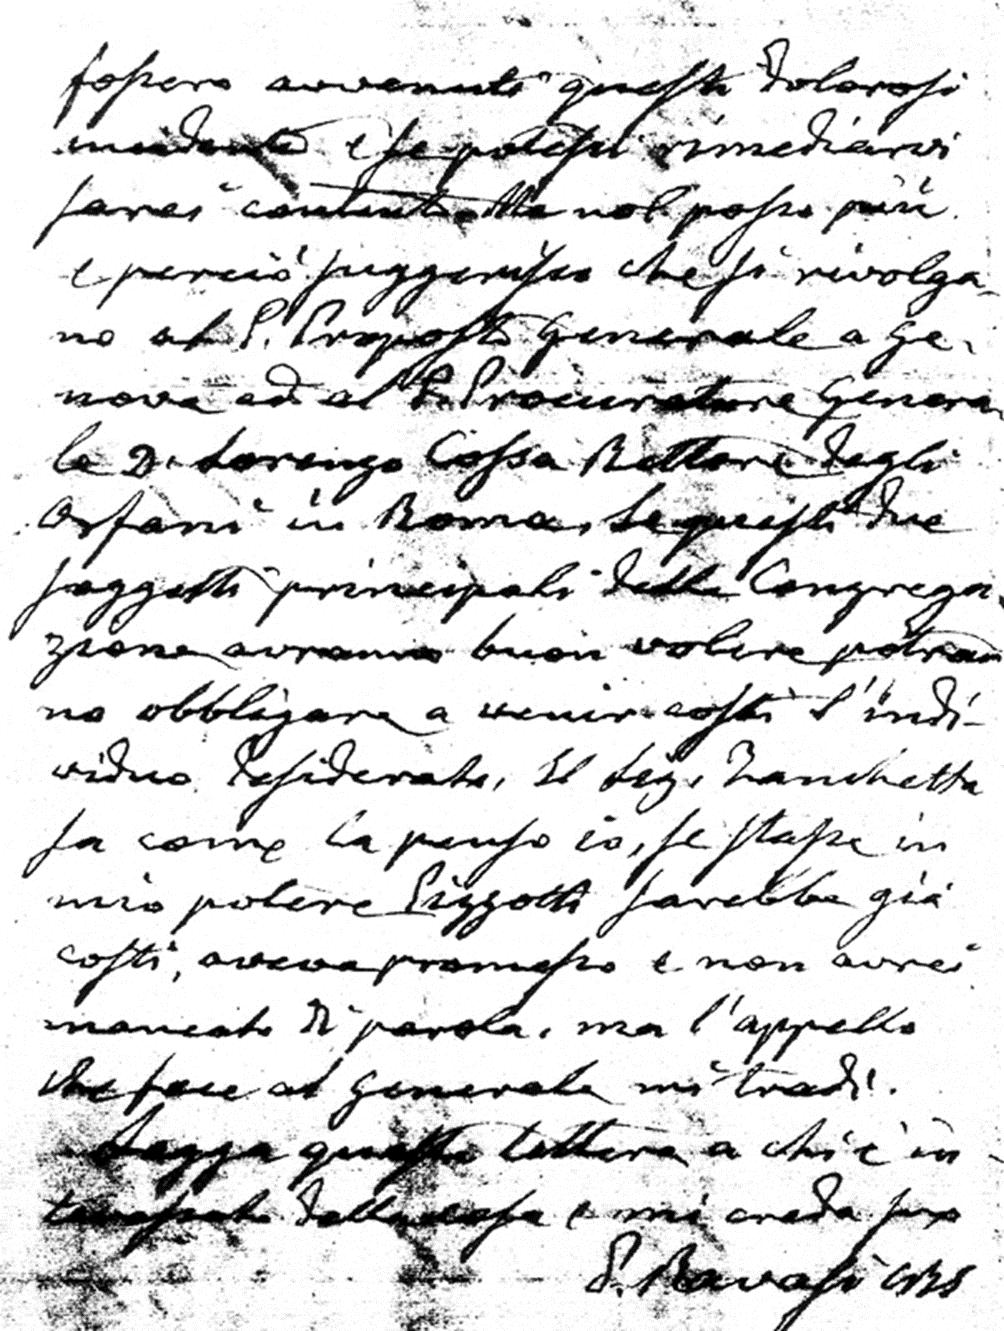 fossero avvenuti questi dolorosi
incidenti e se potessi rimediarvi
sarei contento. Ma nol posso più
e perciò suggerisco che si rivolga-
no al P. Preposto Generale a Ge-
nova ed al P. Procuratore Genera-
le D. Lorenzo Cossa Rettore degli
Orfani in Roma. Se questi due
soggetti principali della Congrega-
zione avranno buon volere potran
no obbligare a venir costì l'indi-
viduo desiderato. Il Sig. Zanchetta
sa come la penso io, se stasse in
mio potere Pizzotti sarebbe già
costì, aveva promesso e non avrei
mancato di parola, ma l'appello
che fece al Generale mi tradì.
Legga questa lettera a chi è in-
teressato della cosa e mi creda suo
P. Ravasi CRS